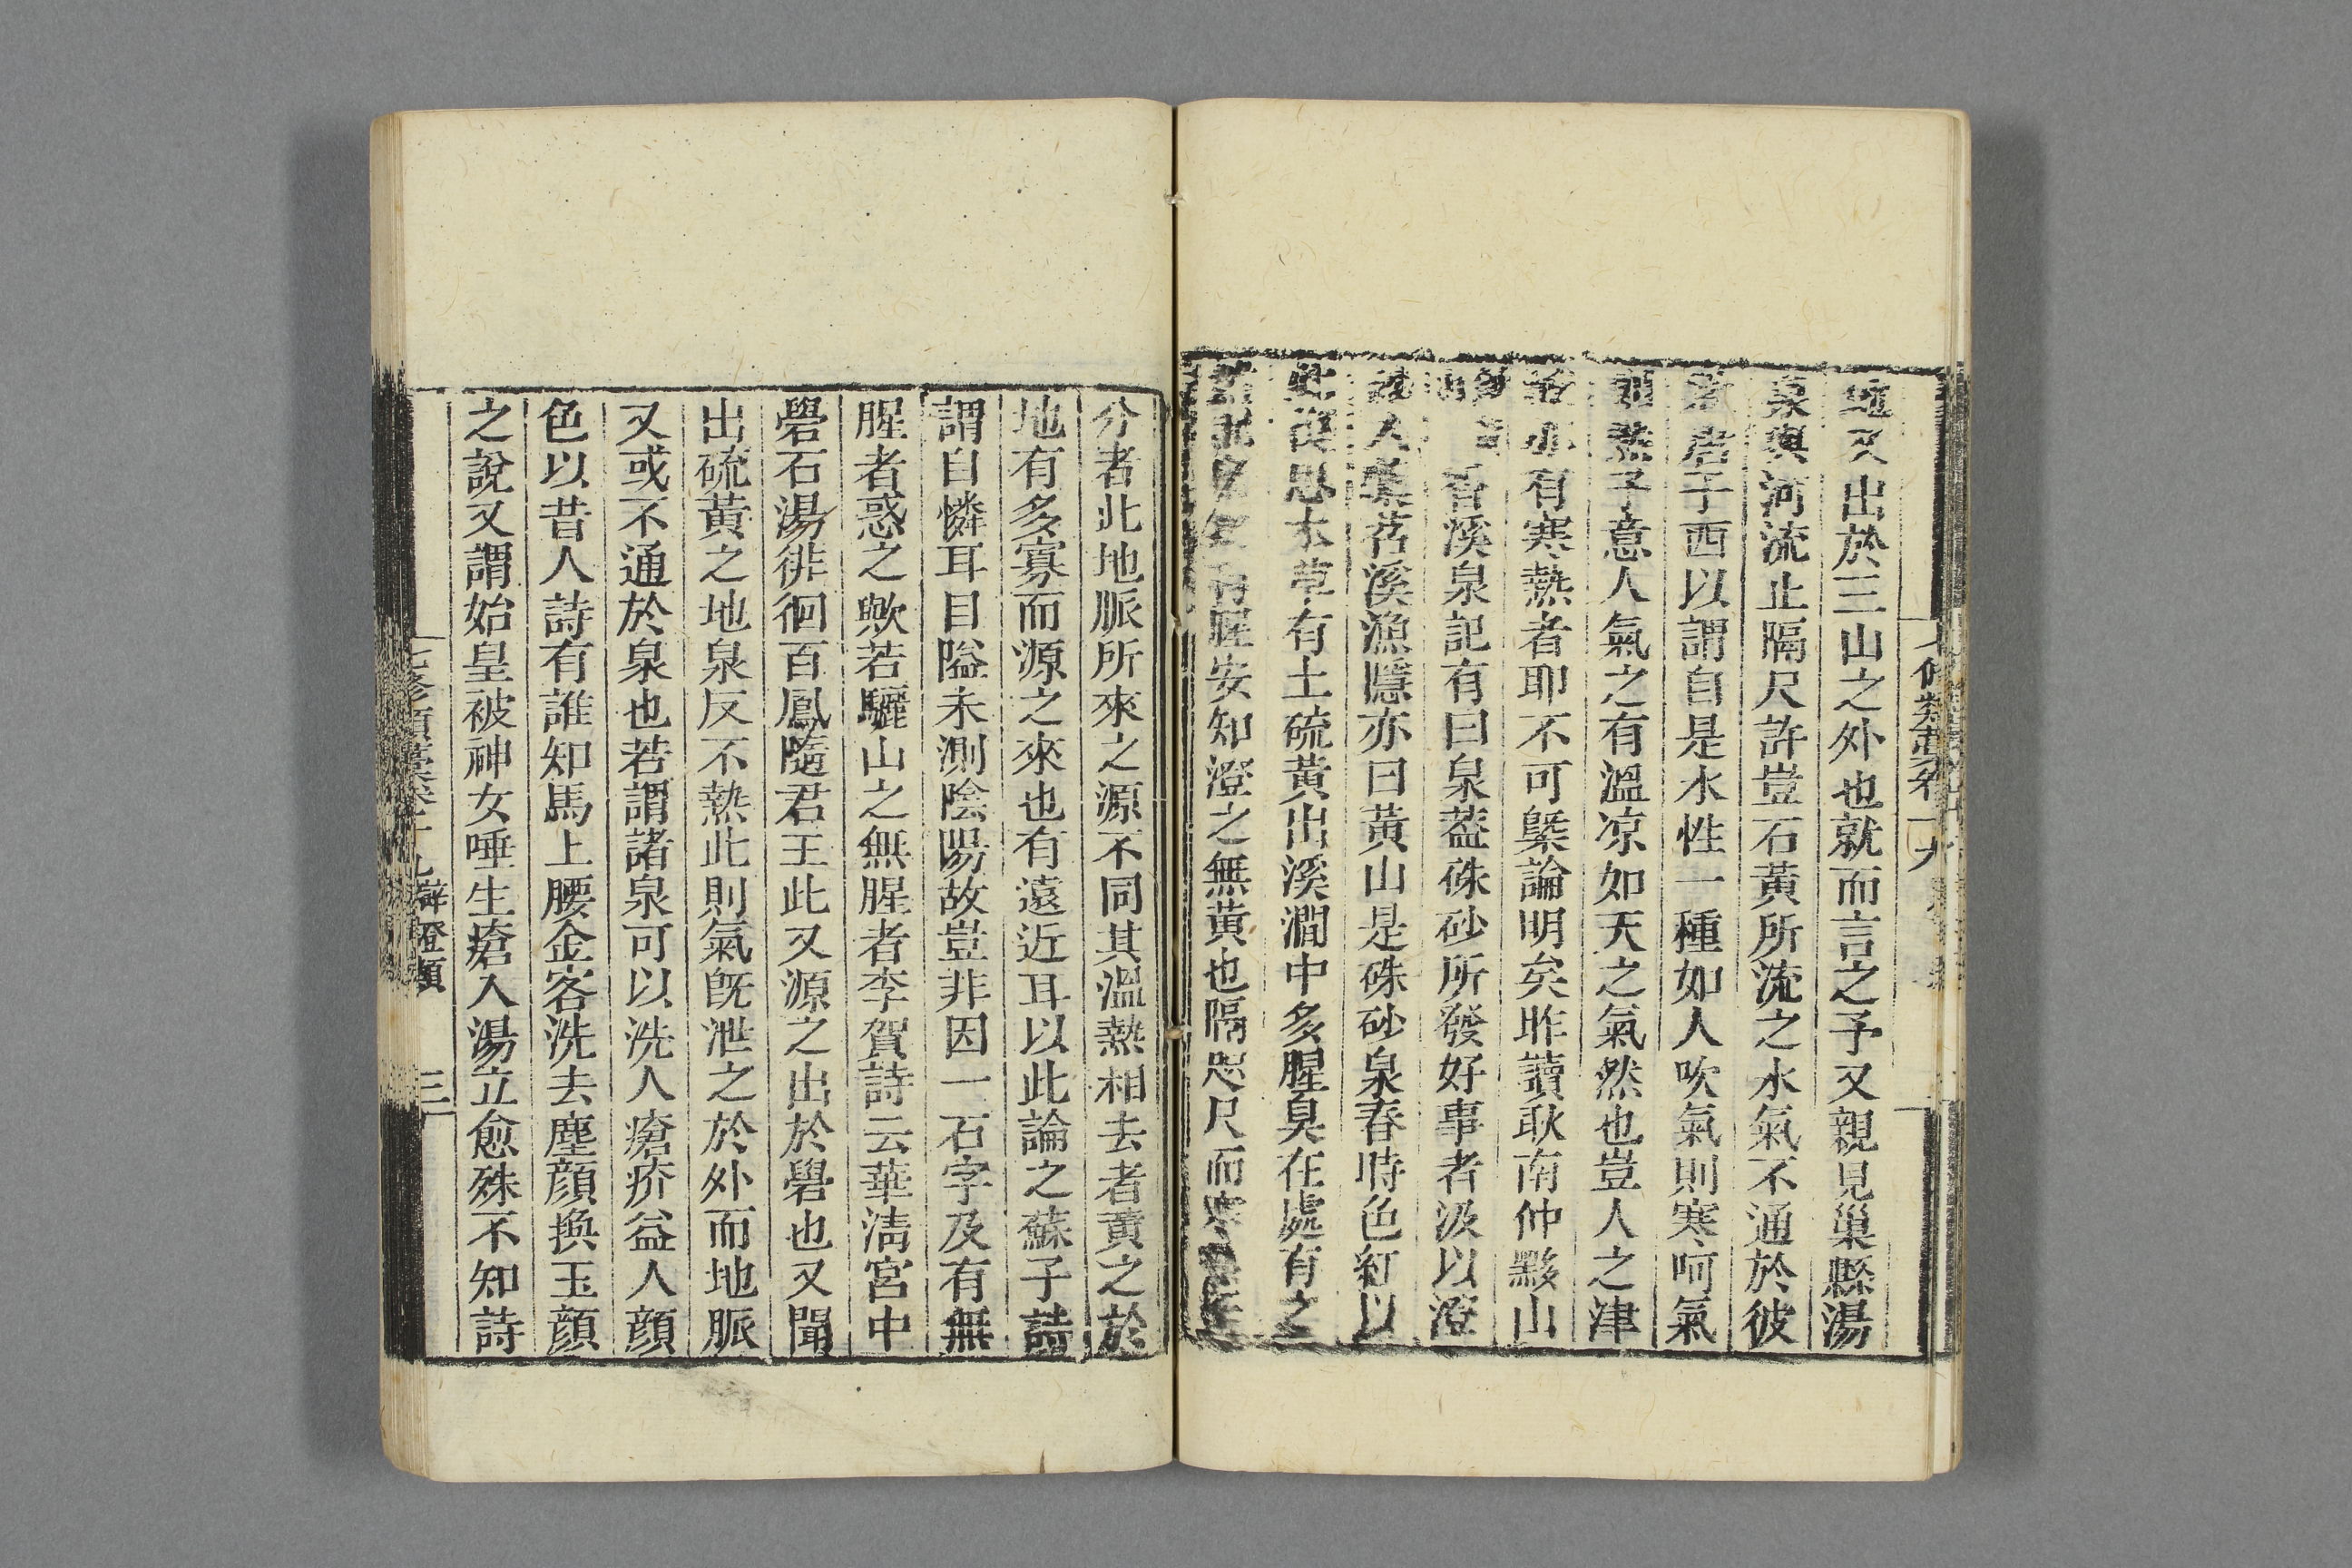 又出於三山之外也就而言之予又親見巢縣湯
泉與河流止隔尺許豈石黃所流之水氣不通於彼
唐子西以謂自是水性一種如人吹氣則寒呵氣
則熱予意人氣之有溫凉如天之氣然也豈人之津
亦有寒熱者耶不可槩論明矣昨讀耿南仲黟山
香溪泉記有曰泉葢硃砂所發好事者汲以澄
人集苕溪漁隱亦曰黃山是硃砂泉春時色紅以
此復思本草有土硫黃出溪澗中多腥臭在處有之
腥安知澄之無黃也隔咫尺而寒
分者此地脈所來之源不同其溫熱相去者黃之於
地有多寡而源之來也有遠近耳以此論之蘇子詩
謂自憐耳目隘未測陰陽故豈非因一石字及有無
腥者惑之歟若驪山之無腥者李賀詩云華淸宮中
礐石湯徘徊百鳳隨君王此又源之出於礐也又聞
出硫黃之地泉反不熱此則氣旣泄之於外而地脈
又或不通於泉也若謂諸泉可以洗人瘡疥益人顔
色以昔人詩有誰知馬上腰金客洗去塵顔換玉顔
之說又謂始皇被神女唾生瘡入湯立愈殊不知詩
七修類藁卷十九 辯證類 三